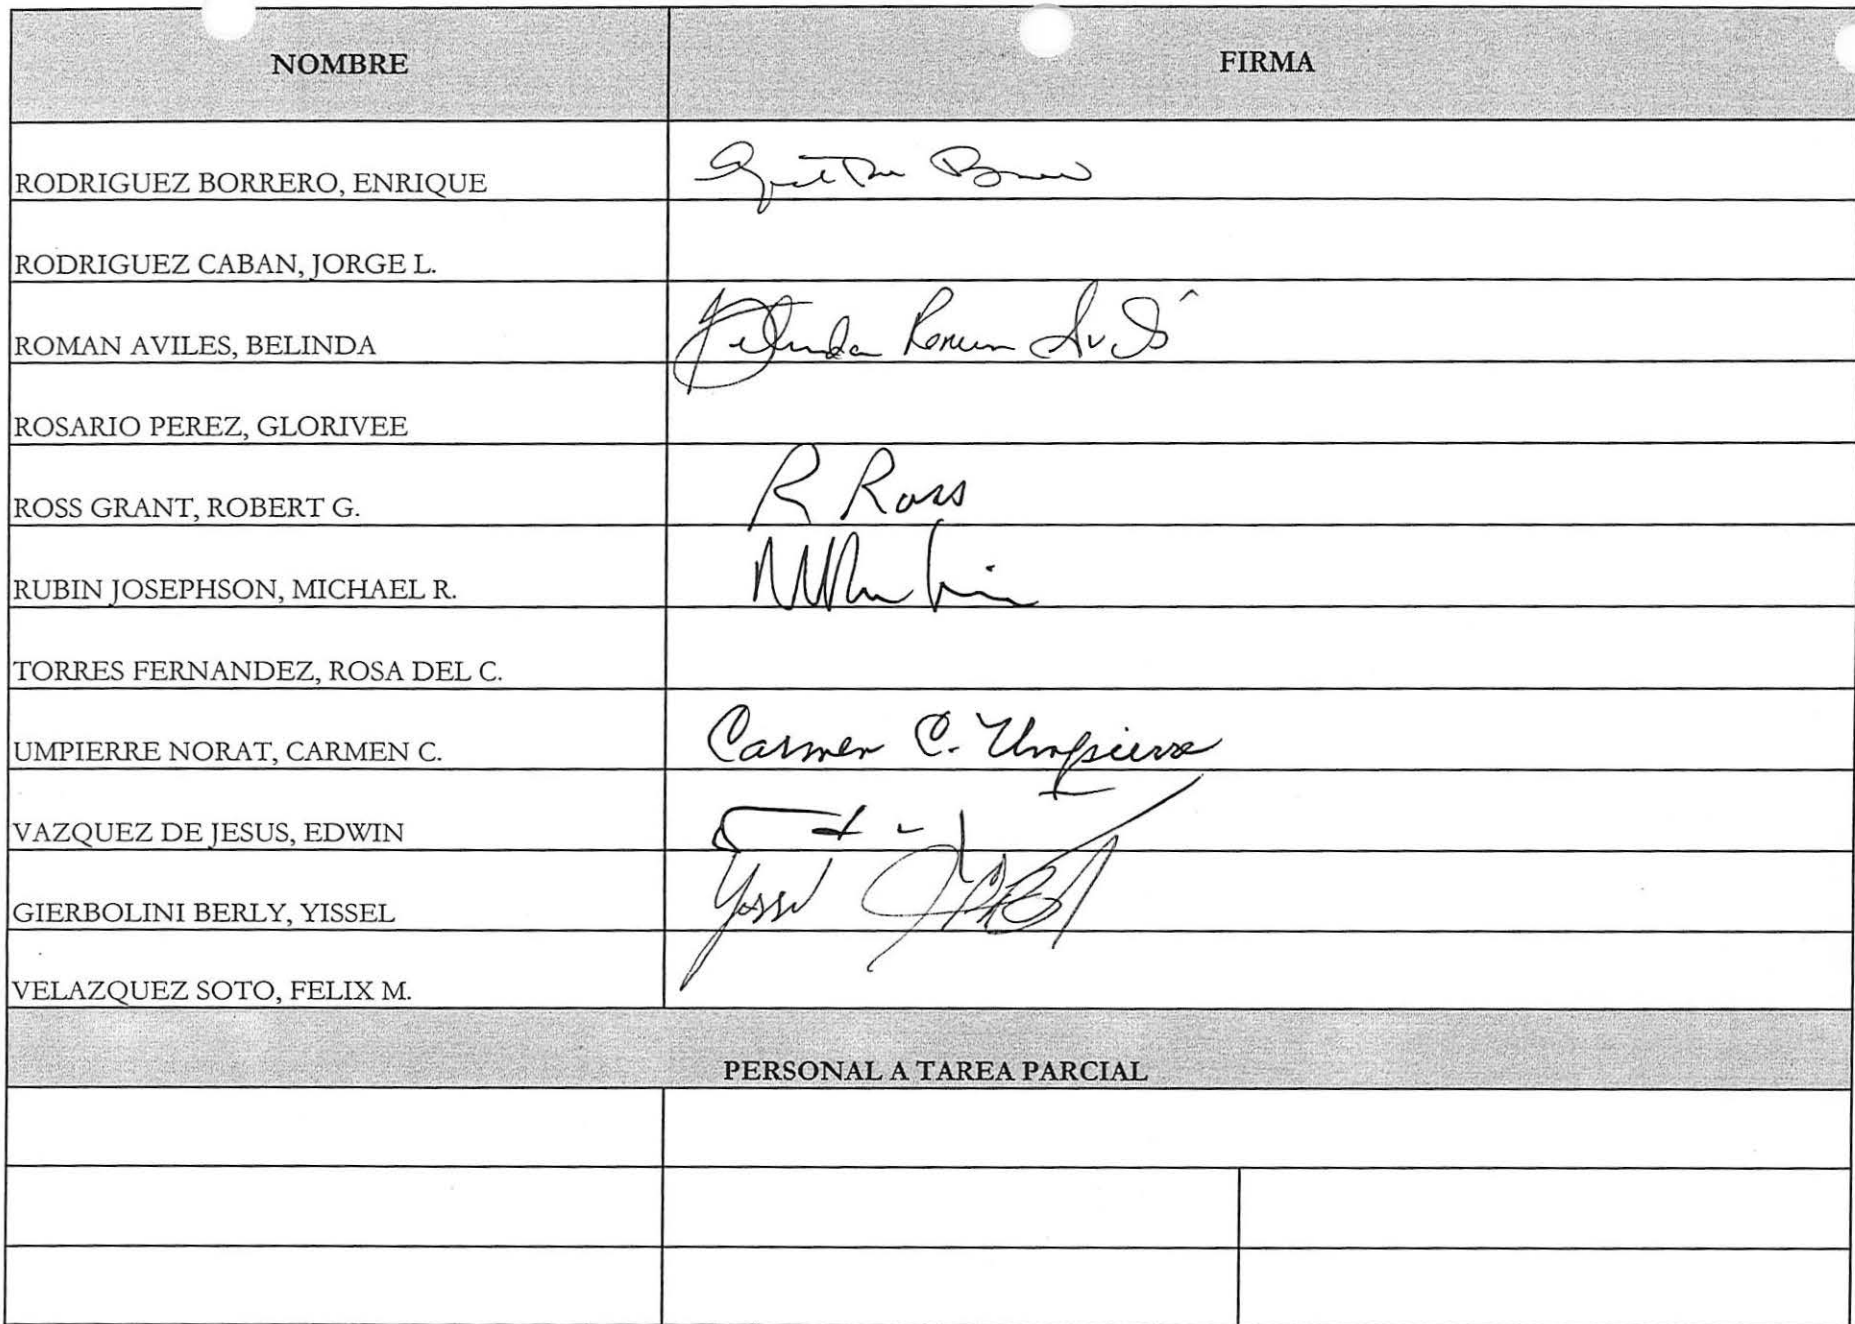 NOMBRE FIRMA
RODRIGUEZ BORRERO, ENRIQUE
RODRIGUEZ CABAN, JORGE L.
ROMAN AVILES, BELINDA Belinda Roman
ROSARIO PEREZ, GLORIVEE
ROSS GRANT, ROBERT G. R Ross
RUBIN JOSEPHSON, MICHAEL R.
TORRES FERNANDEZ, ROSA DEL C.
UMPIERRE NORAT, CARMEN C. Carmen C. Umpierre
VAZQUEZ DE JESUS, EDWIN
GIERBOLINI BERLY, YISSEL
VELAZQUEZ SOTO, FELIX M.
PERSONAL A TAREA PARCIAL